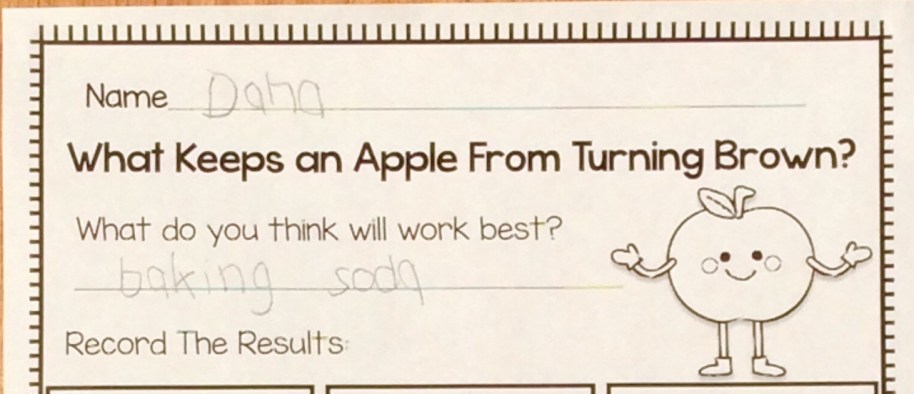 Name Dana
What Keeps an Apple From Turning Brown?
What do you think will work best?
baking soda
Record The Results: